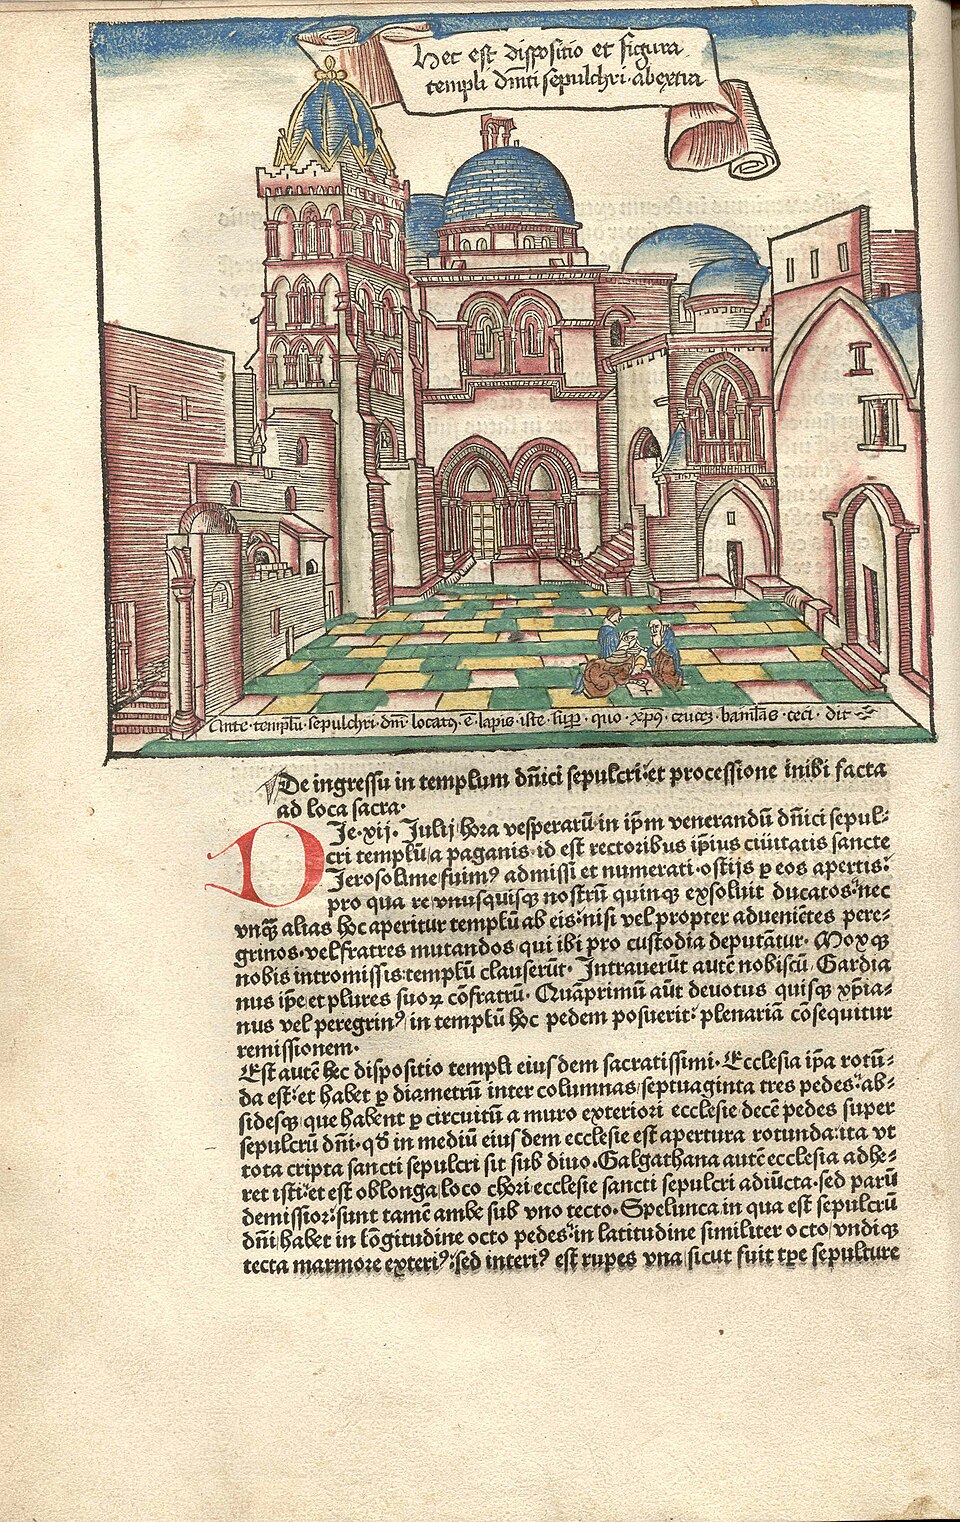 Hec est dispositio et figura
templi dn̄ici sepulchri abextra
Ante · templū · sepulchri · dn̄i · locatꝰ · ē · lapis · iste · suꝑ · quo · xp̄s · crucē · baiulās · ceci · dit
De ingressu in templum dn̄ici sepulcri: et processione inibi facta
ad loca sacra.
DJe .xij. Julij hora vesperarū in ip̄m venerandū dn̄ici sepul⸗
cri templū a paganis id est rectoribus ip̄ius ciuitatis sancte
Jerosolime fuimꝰ admissi et numerati ostijs ꝑ eos apertis:
pro qua re vnusquisqꝫ nostrū quinqꝫ exsoluit ducatos: nec
vnq̄ꝫ alias hoc aperitur templū ab eis: nisi vel propter adueniētes pere⸗
grinos vel fratres mutandos qui ibi pro custodia deputātur. Moxqꝫ
nobis intromissis: templū clauserūt. Intrauerūt autē nobiscū Gardia
nus ip̄e et plures suoꝝ cōfratrū. Quāprimū aūt deuotus quisqꝫ xp̄ia⸗
nus vel peregrinꝰ in templū hoc pedem posuerit: plenariā cōsequitur
remissionem.
Est autē hec dispositio templi eiusdem sacratissimi. Ecclesia ip̄a rotū⸗
da est: et habet ꝑ diametrū inter columnas septuaginta tres pedes: ab⸗
sidesqꝫ que habent ꝑ circuitū a muro exteriori ecclesie decē pedes super
sepulcrū dn̄i. qd̄ in mediū eiusdem ecclesie est apertura rotunda: ita vt
tota cripta sancti sepulcri sit sub diuo. Galgathana autē ecclesia adhe⸗
ret isti: et est oblonga loco chori ecclesie sancti sepulcri adiūcta. sed parū
demissior: sunt tamē ambe sub vno tecto. Spelunca in qua est sepulcrū
dn̄i/ habet in lōgitudine octo pedes: in latitudine similiter octo/ vndiqꝫ
tecta marmore exteriꝰ: sed interiꝰ est rupes vna sicut fuit tp̄e sepulture